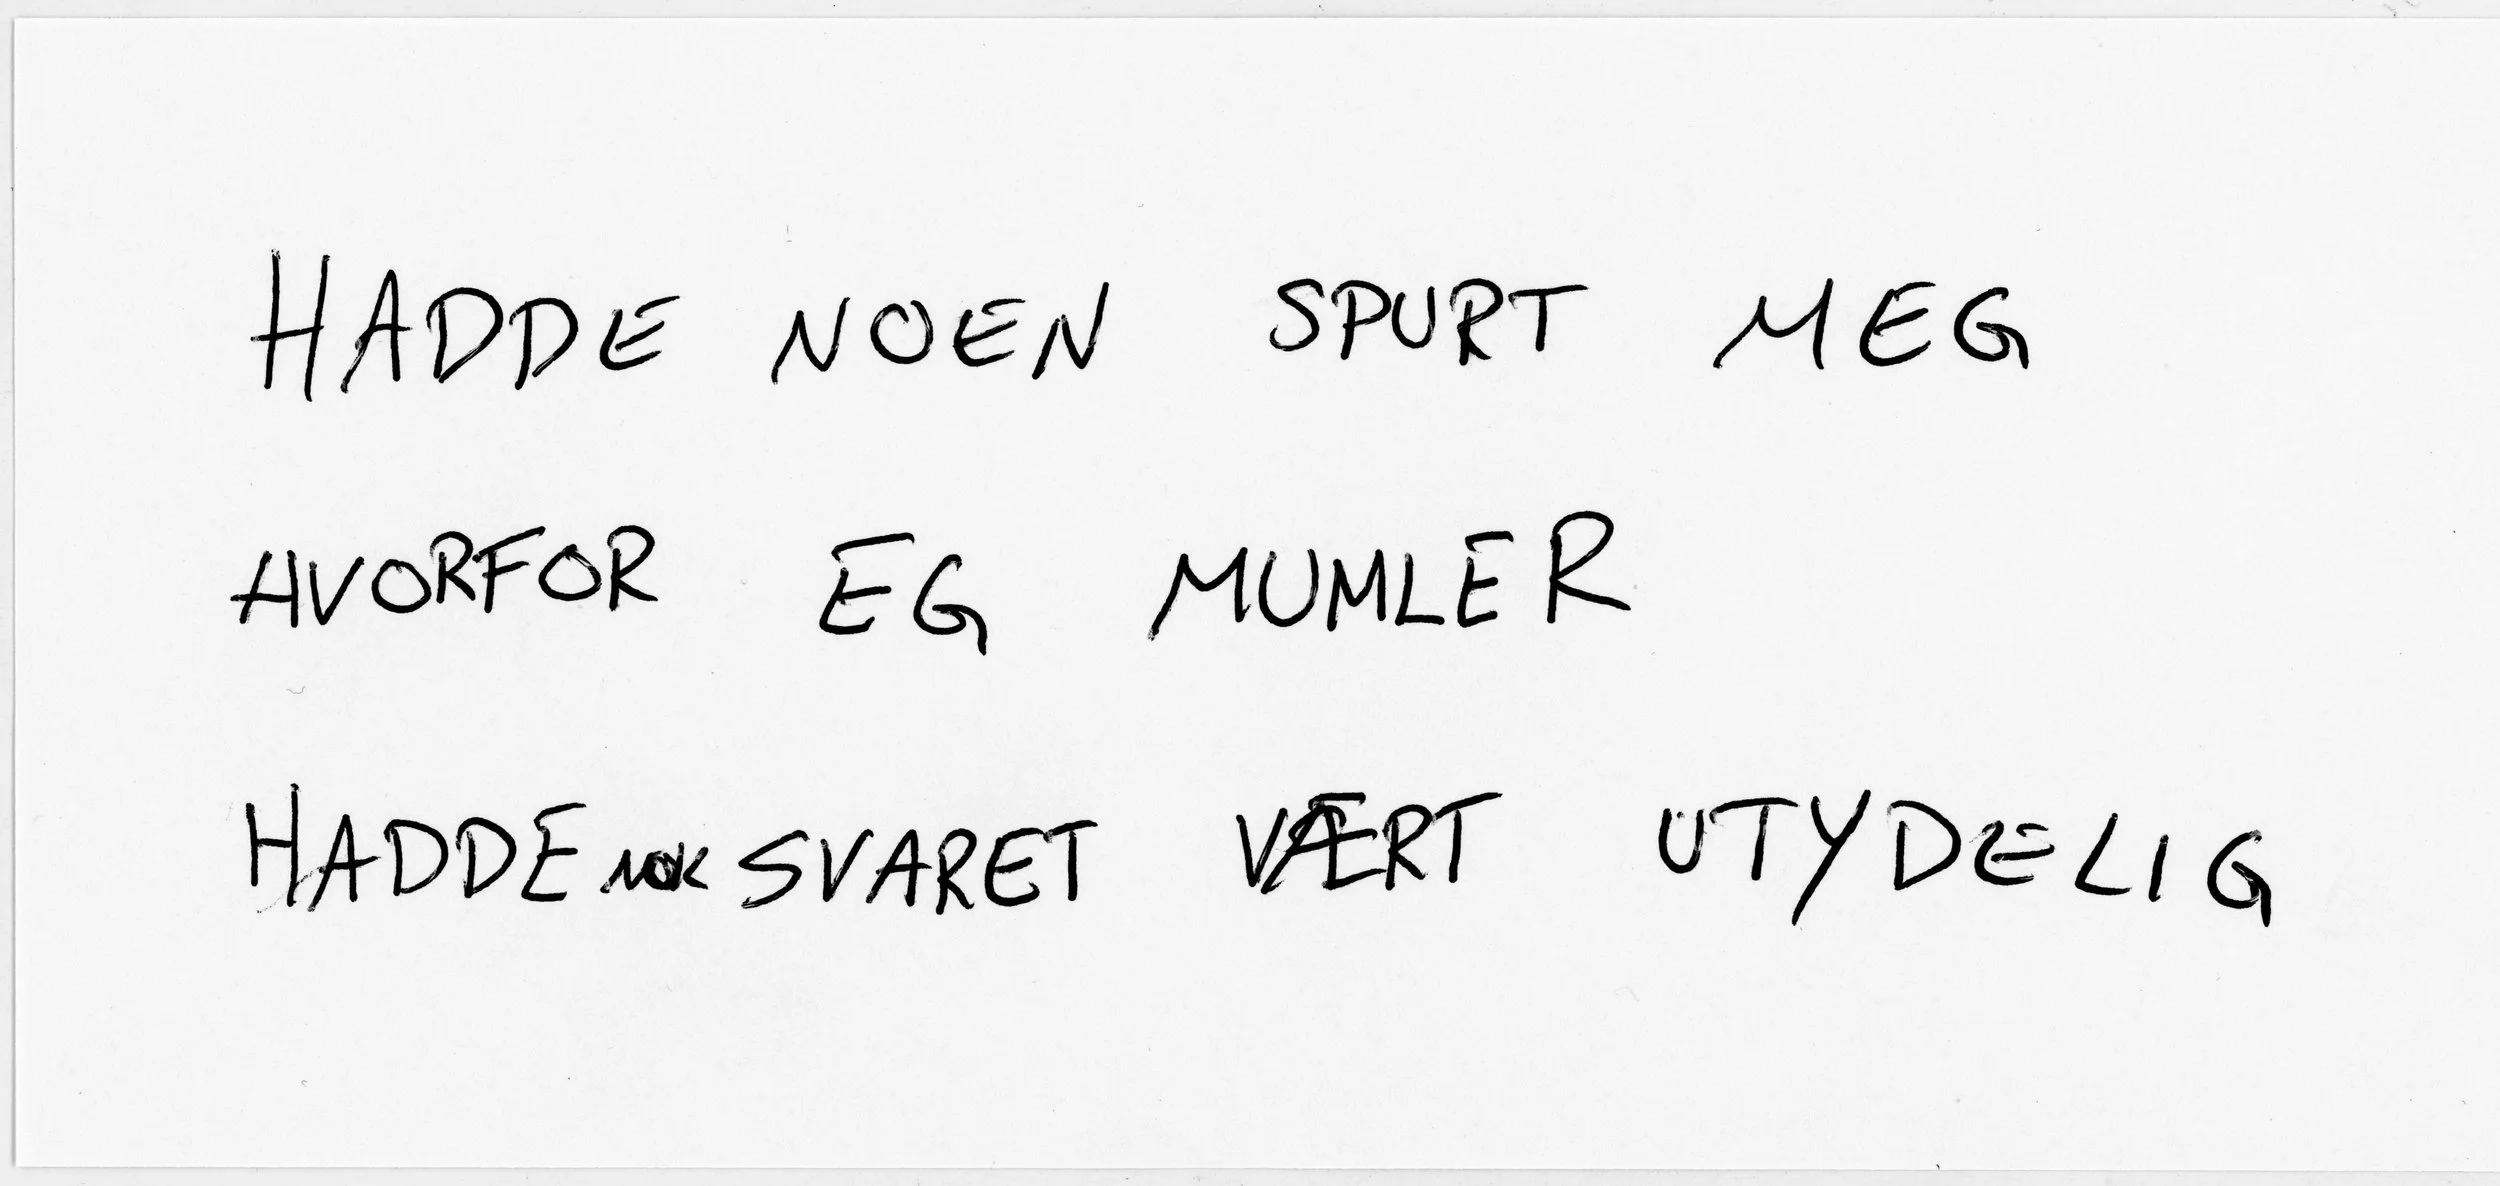 HADDE NOEN SPURT MEG
HVORFOR EG MUMLER
HADDE NOK SVARET VÆRT UTYDELIG